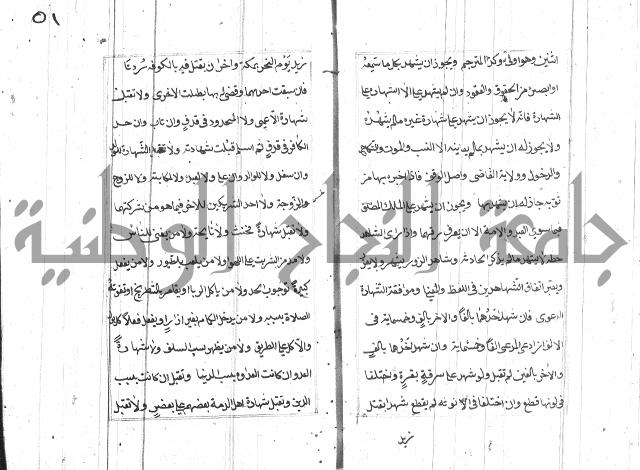 ٥١
اثنين وهو اولى وكذا المترجم ويجوز ان يشهد بكل ما سمعه
او ابصره من الحقوق والعقود وان لم يشهد عليها الا الشهادة على
الشهادة فانه لا يجوز ان يشهد على شهادة غيره ما لم يشهده
ولا يجوز له ان يشهد بما لم يعاينه الا النسب والموت والنكاح
والدخول وولاية القاضي واصل الوقف فاذا اخبره بها من
يثق به جاز له ان يشهد بها ويجوز ان يشهد على الملك المطلق
فيما سوى العبد والامة الا ان يعرف رقهما واذا رأى الشاهد
خطه لا يشهد ما لم يذكر الحادثة وشاهد الزور يشهر ولا يعزر
ويعتبر اتفاق الشاهدين في اللفظ والمعنى وموافقة الشهادة
الدعوى فان شهد احدهما بالف والاخر بالف وخمسماية في
الالف ان ادعى المدعي الفا وخمسماية وان شهد احدهما بالف
والاخر بالفين لم تقبل ولو شهدا على سرقة بقرة واختلفا
في لونها قطع وان اختلفا في الانوثة لم يقطع شهدا بقتل
زيد
زيد يوم النحر بمكة واخران بقتله فيه بالكوفة ردتا
فان سبقت احديهما وقضي بها بطلت الاخرى ولا تقبل
شهادة الاعمى ولا المحدود في قذف وان تاب وان حد
الكافر في قذف ثم اسلم قبلت شهادته ولا تقبل الشهادة للولد
وان سفل ولا للوالد وان علا ولا للعبد ولا المكاتبة ولا للزوج
والزوجة ولا احد الشريكين للاخر فيما هو من شركتهما
ولا تقبل شهادة مخنث ولا نايحة ولا من يغني للناس
ولا مدمن الشرب على اللهو ولا من يلعب بالطيور ولا من يفعل
كبيرة توجب الحد ولا من ياكل الربا او يقامر بالشطرنج او تفوته
الصلاة بسببه ولا من يدخل الحمام بغير ازار او يفعل فعلا كالبول
والاكل على الطريق ولا من يظهر سب السلف ولا شهادة
العدو ان كانت العداوة بسبب الدنيا وتقبل ان كانت بسبب
الدين وتقبل شهادة اهل الذمة بعضهم على بعض ولا تقبل
جامعة النجاح الوطنية